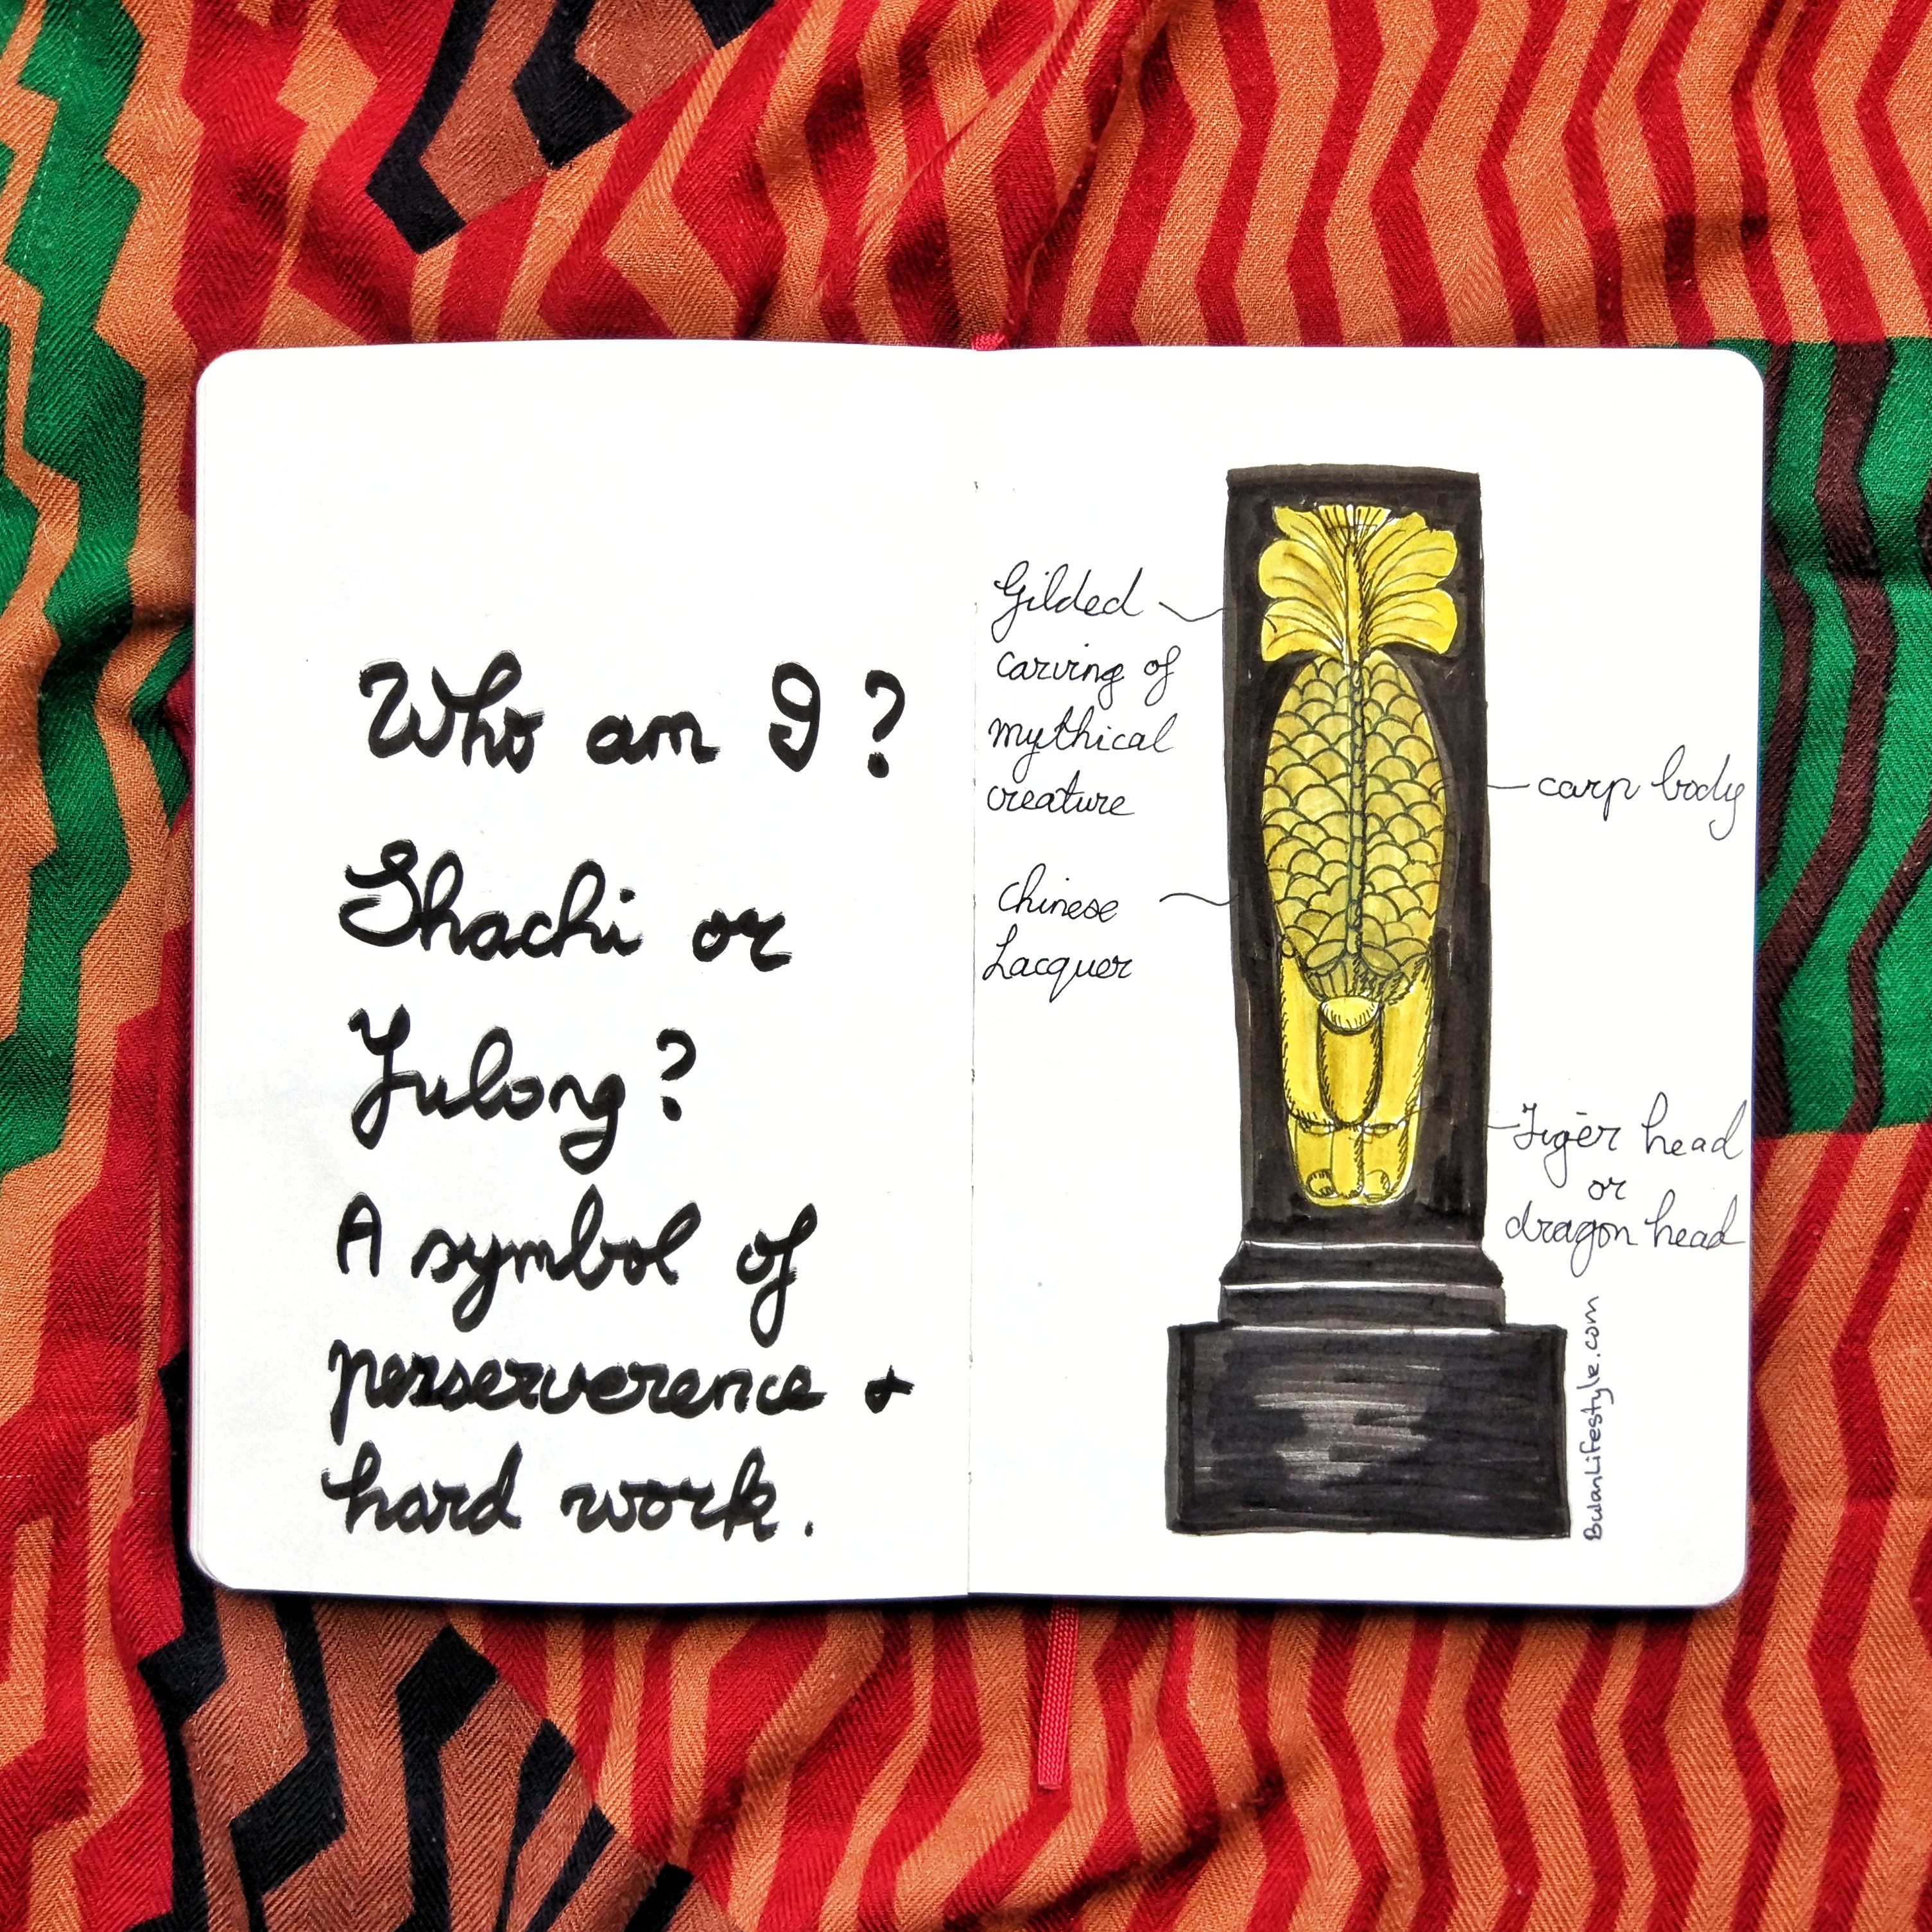 Who am I?
Shachi or
Yulong?
A symbol of
perserverence &
hard work.
Gilded
carving of
mythical
creature
Chinese
Lacquer
carp body
Tiger head
or
dragon head
BuwanLifestyle.com